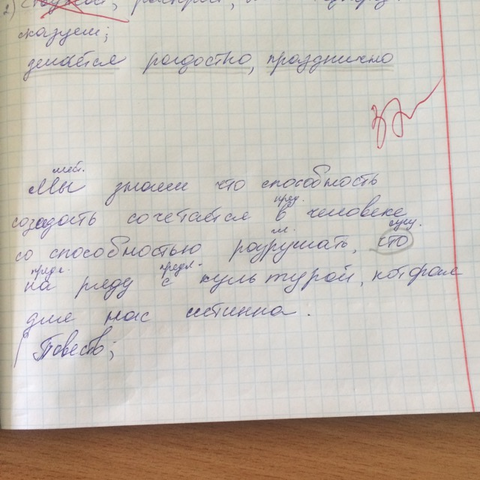 2)
сказуем;
делается радостно, празднично
мест.
Мы знаем что способность
предл.
создать сочетается в человеке
гл. сущ.
со способностью разрушать, что
предл. предл.
на ряду с культурой, которая
для нас истинна.
Повеств;